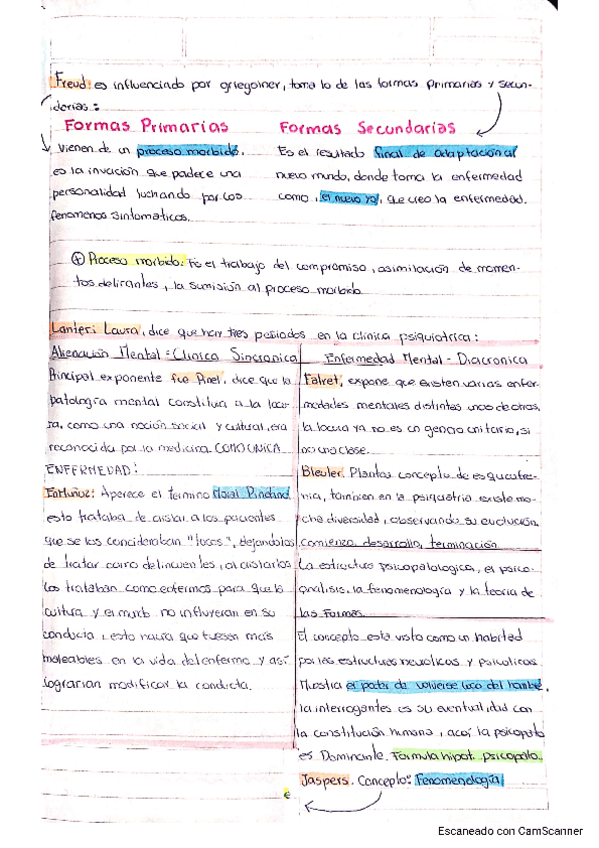 Freud: es influenciado por griegoiner, toma lo de las formas primarias y secun-
darias:
Formas Primarias
vienen de un proceso morbido.
es la invación que padece una
personalidad luchando por los
fenomenos sintomaticos.
Formas Secundarias
Es el resultado final de adaptación al
nuevo mundo, donde toma la enfermedad
como, el nuevo yo, que creo la enfermedad.
Proceso morbido: Es el trabajo del compromiso, asimilación de momen-
tos delirantes, la sumisión al proceso morbido
Lanteri Laura, dice que hay tres periodos en la clínica psiquiatrica:
Alienación Mental: Clínica Sincronica
Principal exponente fue Pinel, dice que la
patología mental constituia a la locu-
ra, como una noción social y cultural, era
reconocida por la medicina COMO UNICA
ENFERMEDAD:
Aparece el termino
esto trataba de aislar a los pacientes
que se los concideraban "locos", dejandolos
de tratar como delincuentes, al aislarlos
los trataban como enfermos para que la
cultura y el mundo no influyeran en su
conducta, esto haria que fuesen más
moleables en la vida del enfermo y asi
lograrian modificar la conducta.
Enfermedad Mental - Diacronica
Falret, expone que existen varias enfer-
medades mentales distintas unas de otras,
la locura ya no es un genero unitario, si
no una clase.
Bleuler. Plantea concepto de esquizofre-
nia, tambien en la psiquiatria existe mu-
cha diversidad, observando su evolución,
comienzo, desarrollo, terminación
La estructura psicopatologica, el psico-
analisis, la fenomenología y la teoria de
las Formas
El concepto esta visto como un habitad
por las estructuras neuroticas y psicoticas
Muestra el poder de volverse loco del hombre,
la interrogantes es su eventualidad con
la constitución humana, acá la psicopato
es Dominante. Formula hipot. psicopato.
Jaspers. Concepto: Fenomenología
Escaneado con CamScanner